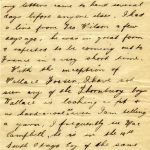 my letters came to hand several
days before anyone else. I had
a line from Geo Wilson a few
days ago. he was in good form
& expected to be coming out to
France in a very short time.
With the exception of
Wallace Fraser, I have not
seen any of the Thornbury boys
Wallace is looking as fit
as
I am telling
a yarn, I frequently see
Campbell, he is in the 4th
of the same